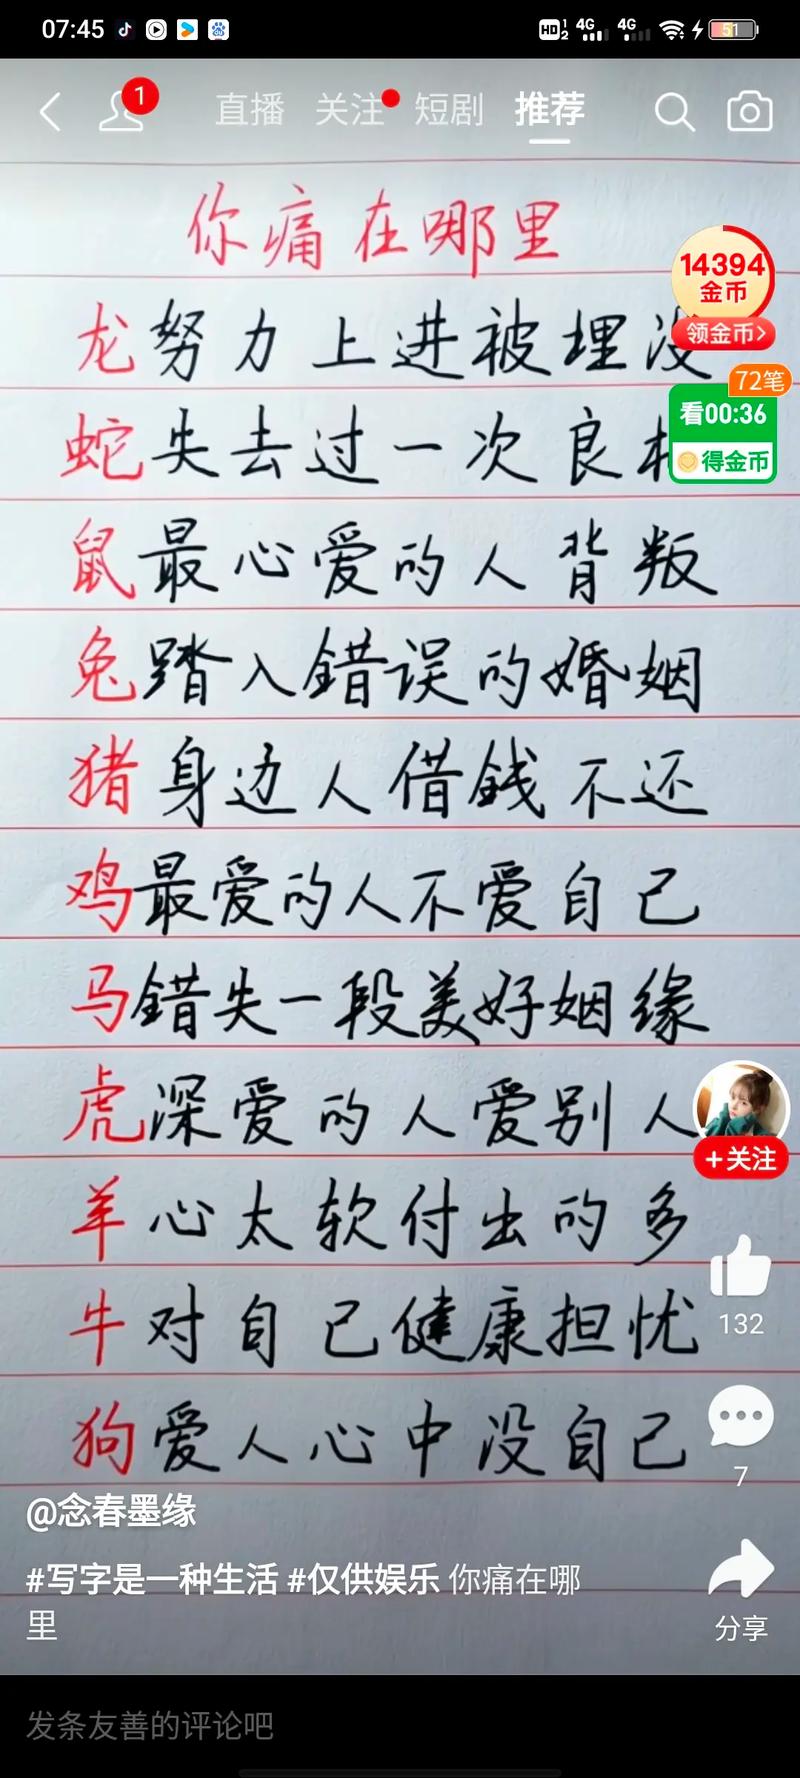 07:45
HD 1 2 4G 4G 51
1
直播 关注 短剧 推荐
你痛在哪里
14394
金币
领金币>
龙努力上进被埋没
72笔
看00:36
得金币
蛇失去过一次良
鼠最心爱的人背叛
兔踏入错误的婚姻
猪身边人借钱不还
鸡最爱的人不爱自己
马错失一段美好姻缘
虎深爱的人爱别人
+关注
羊心太软付出的多
132
牛对自己健康担忧
狗爱人心中没自己
7
@念春墨缘
#写字是一种生活 #仅供娱乐 你痛在哪
里
分享
发条友善的评论吧